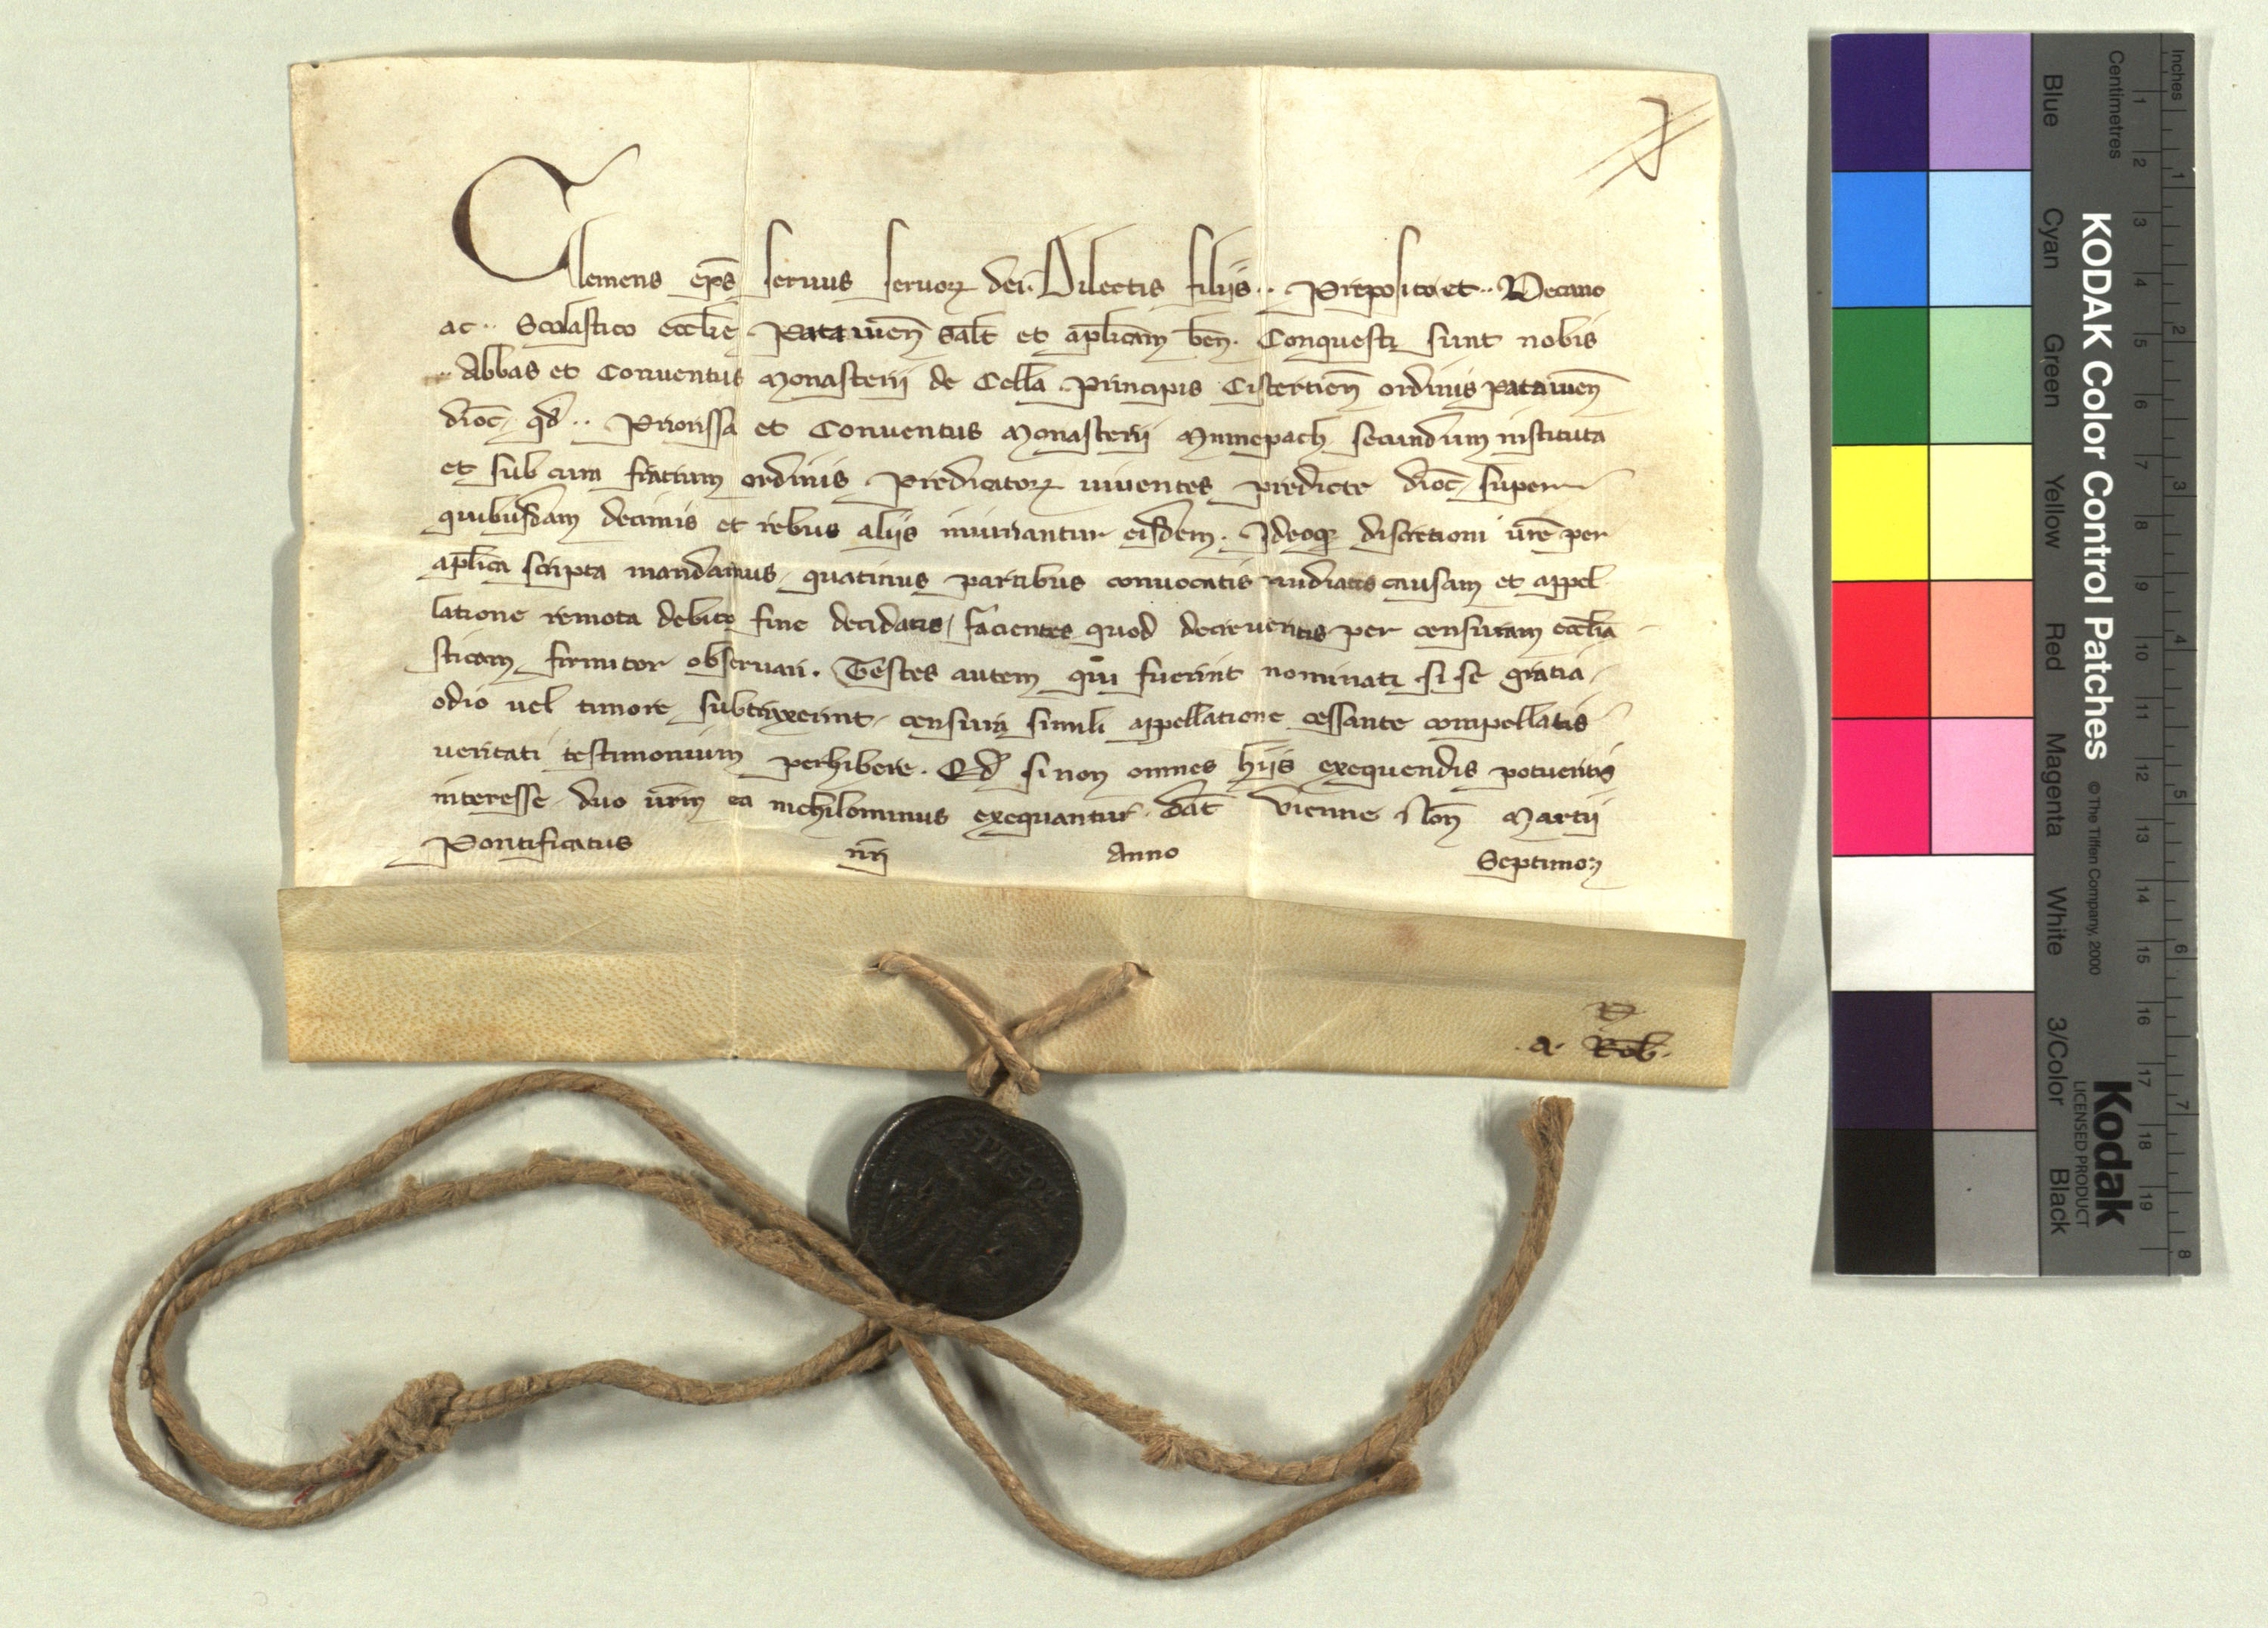 Clemens ep̄s seruus seruoꝝ dei. Dilectis filijs .. Preposito et .. Decano
ac .. Scolastico eccl̄ie Patauien̄ sal̄t et ap̄licam ben̄. Conquesti sunt nobis
.. Abbas et Conuentus Monasterij de Cella Principis Cistertien̄ ordinis Patauien̄
dioc̄, qd̄ .. Priorissa et Conuentus Monasterij Minnepach secundum instituta
et sub cura fratrum ordinis Predicatoꝝ uiuentes predicte dioc̄, super
quibusdam decimis et rebus alijs iniuriantur eisdem. Ideoqꝫ discretioni ur̄e per
ap̄lica scripta mandamus, quatinus partibus conuocatis audiatis causam et appel
latione remota debito fine decidatis, facientes quod decreueritis per censuram eccl̄ia
sticam firmiter obseruari. Testes autem qui fuerint nominati si se gratia,
odio uel timore subtraxerint, censura simili appellatione cessante compellatis
ueritati testimonium perhibere. Qd̄ si non omnes hijs exequendis potueritis
interesse duo ur̄m ea nichilominus exequantur. Dat̄ Vienne Non̄ Martij
Pontificatus nr̄i Anno Septimo
.a. Rob.
KODAK Color Control Patches
© The Tiffen Company, 2000
Kodak
LICENSED PRODUCT
Inches
1 2 3 4 5 6 7 8
Centimetres
1 2 3 4 5 6 7 8 9 10 11 12 13 14 15 16 17 18 19
Blue
Cyan
Green
Yellow
Red
Magenta
White
3/Color
Black